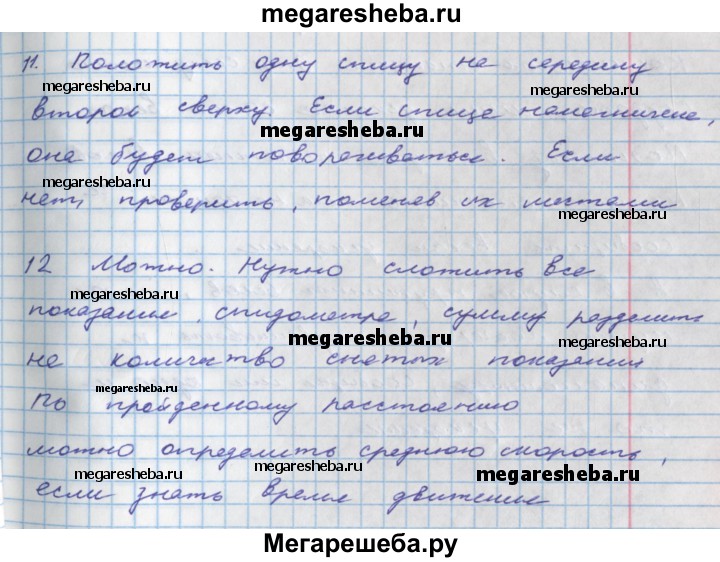 megaresheba.ru
11. Положить одну спицу на середину
megaresheba.ru
megaresheba.ru
второй сверху. Если спица намагничена,
megaresheba.ru
она будет поворачиваться. Если
megaresheba.ru
нет, проверить, поменяв их местами
megaresheba.ru
megaresheba.ru
12 Можно. Нужно сложить все
megaresheba.ru
megaresheba.ru
показания спидометра, сумму разделить
megaresheba.ru
megaresheba.ru
на количество снятых показаний
megaresheba.ru
По пройденному расстоянию
можно определить среднюю скорость,
megaresheba.ru
megaresheba.ru
megaresheba.ru
если знать время движения
Мегарешеба.ру